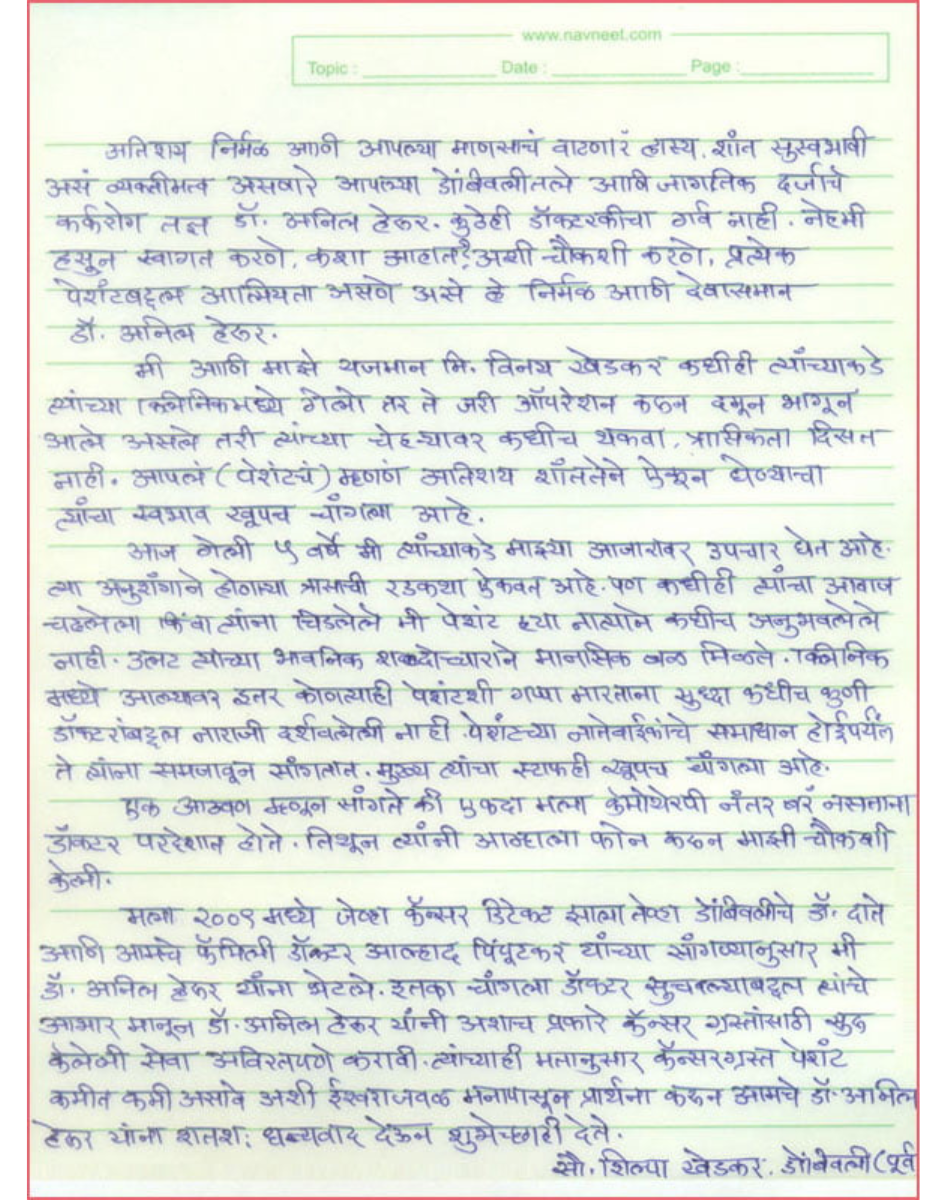 www.navneet.com
Topic : Date : Page :
अतिशय निर्मळ आणि आपल्या माणसाचं वाटणारं हास्य, शांत सुस्वभावी
असं व्यक्तीमत्व असणारे आपल्या डोंबिवलीतले आणि जागतिक दर्जाचे
कर्करोग तज्ञ डॉ. अनिल हेरूर. कुठेही डॉक्टरकीचा गर्व नाही. नेहमी
हसून स्वागत करणे, कशा आहात? अशी चौकशी करणे, प्रत्येक
पेशंटबद्दल आत्मियता असणे असे हे निर्मळ आणि देवासमान
डॉ. अनिल हेरूर.
मी आणि माझे यजमान मि. विनय खेडकर कधीही त्यांच्याकडे
त्यांच्या क्लिनिकमध्ये गेलो तर ते जरी ऑपरेशन करून दमून भागून
आले असले तरी त्यांच्या चेहऱ्यावर कधीच थकवा, त्रासिकता दिसत
नाही. आपलं (पेशंटचं) म्हणणं अतिशय शांततेने ऐकून घेण्याचा
त्यांचा स्वभाव खूपच चांगला आहे.
आज गेली ५ वर्षे मी त्यांच्याकडे माझ्या आजारावर उपचार घेत आहे.
त्या अनुशंगाने होणाऱ्या त्रासाची रडकथा ऐकवत आहे. पण कधीही त्यांचा आवाज
चढलेला किंवा त्यांना चिडलेले मी पेशंट ह्या नात्याने कधीच अनुभवलेले
नाही. उलट त्यांच्या भावनिक शब्दोच्चाराने मानसिक बळ मिळते. क्लिनिक
मध्ये आल्यावर इतर कोणत्याही पेशंटशी गप्पा मारताना सुध्दा कधीच कुणी
डॉक्टरांबद्दल नाराजी दर्शवलेली नाही. पेशंटच्या नातेवाईकांचे समाधान होईपर्यंत
ते त्यांना समजावून सांगतात. मुख्य त्यांचा स्टाफही खूपच चांगला आहे.
एक आठवण म्हणून सांगते की एकदा मला केमोथेरपी नंतर बरं नसताना
डॉक्टर परदेशात होते. तिथून त्यांनी आम्हाला फोन करून माझी चौकशी
केली.
मला २००९ मध्ये जेव्हा कॅन्सर डिटेक्ट झाला तेव्हा डोंबिवलीचे डॉ. दाते
आणि आमचे फॅमिली डॉक्टर आल्हाद पिंपुटकर यांच्या सांगण्यानुसार मी
डॉ. अनिल हेरूर यांना भेटले. इतका चांगला डॉक्टर सुचवल्याबद्दल त्यांचे
आभार मानून डॉ. अनिल हेरूर यांनी अशाच प्रकारे कॅन्सर ग्रस्तांसाठी सुरू
केलेली सेवा अविरतपणे करावी. त्यांच्याही मतानुसार कॅन्सरग्रस्त पेशंट
कमीत कमी असावे अशी ईश्वराजवळ मनापासून प्रार्थना करून आमचे डॉ. अनिल
हेरूर यांना शतशः धन्यवाद देऊन शुभेच्छाही देते.
सौ. शिल्पा खेडकर, डोंबिवली (पूर्व